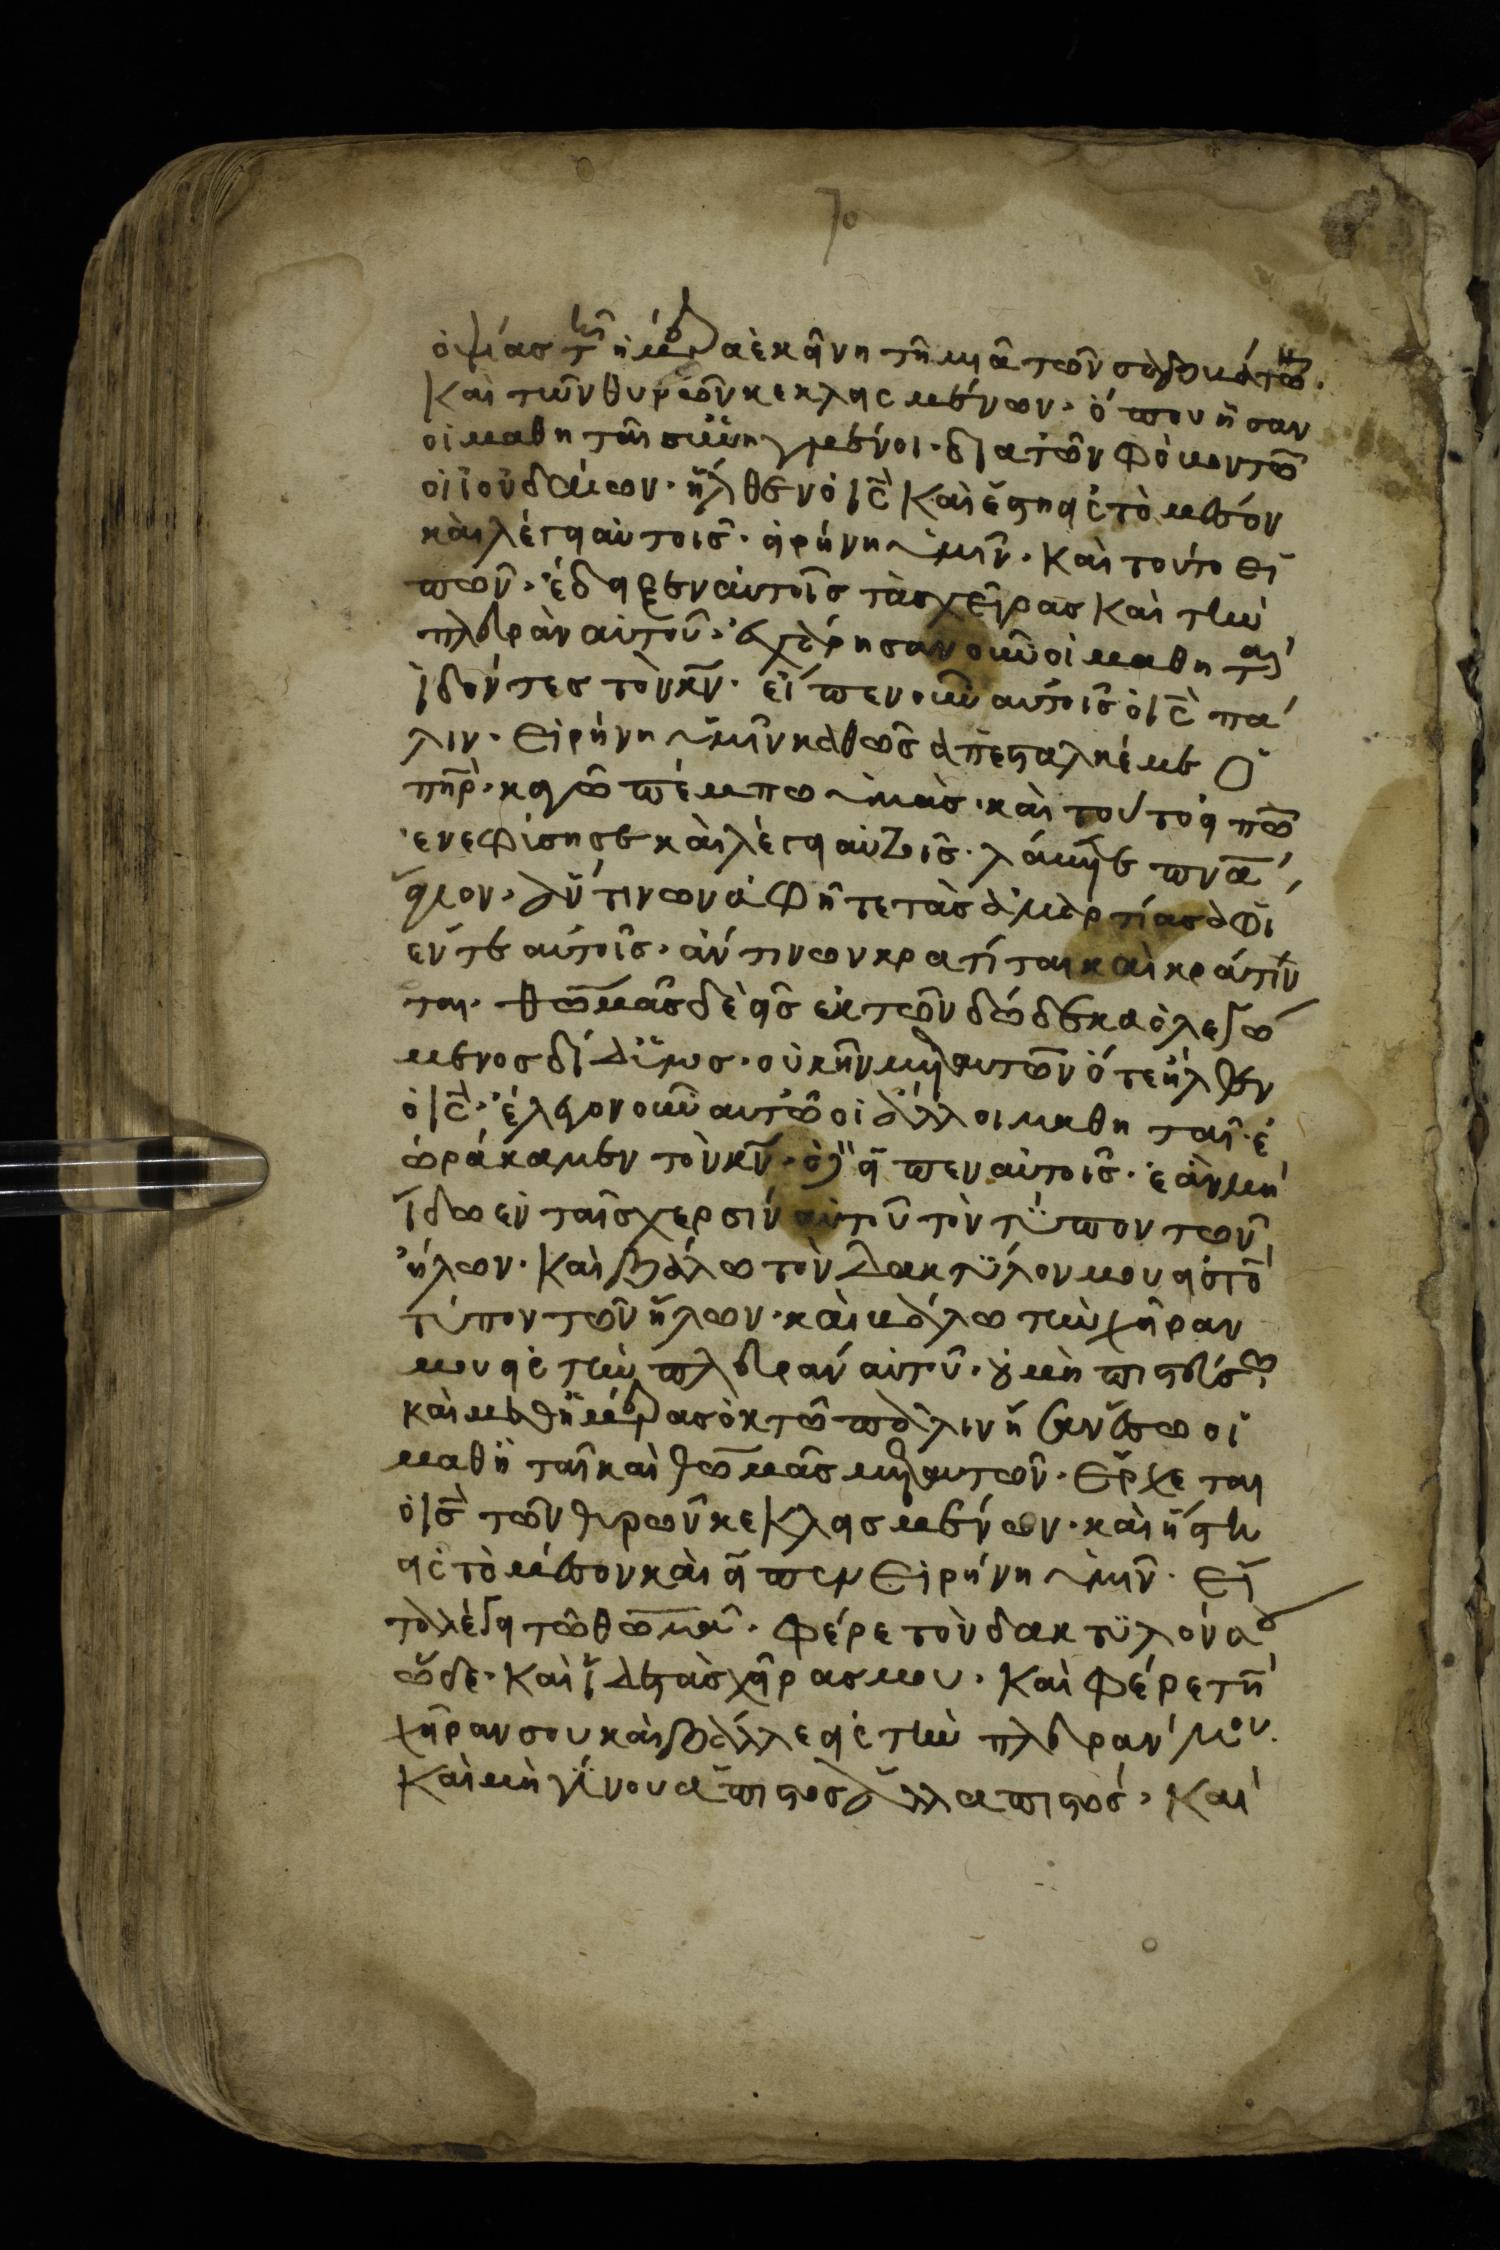 70
ὀψίας τῆ ἡμέρα ἐκῆνη τῆ μιᾶ τῶν σαββάτω̅.
Καὶ τῶν θυρῶν κεκλεισμένων· ὅπου ἦσαν
οἱ μαθηταὶ συνηγμένοι· διὰ τῶν φόβον τω̅
οἱ ἰουδαίων· ἦλθεν ὁ ι̅ς̅ Καὶ ἔστη εἰς τὸ μέσον
καὶ λέγει αὐτοῖς· εἰρήνη ὑμῖν· καὶ τοῦτο εἰ
πῶν· ἔδειξεν αὐτοῖς τὰς χεῖρας Καὶ τὴν
πλευρὰν αὐτοῦ· ἐχάρησαν οὖν οἱ μαθηταὶ
ἰδόντες τὸν κ̅ν̅· εἶπεν οὖν αὐτοῖς ὁ ι̅ς̅ πά
λιν· Εἰρήνη ὑμῖν καθῶς ἀπέσταλκέ με ὁ
π̅η̅ρ̅· κἀγῶ πέμπω ὑμᾶς· καὶ τοῦτο εἰπω̅
ἐνεφίσησε καὶ λέγει αὐτοῖς· λάβετε π̅ν̅α̅
ἅγιον· ἄν τινων ἀφῆτε τὰς ἁμαρτίας ἀφί
εντε αὐτοῖς· ἄν τινων κρατίται καὶ κράτιν
ται· θωμᾶς δὲ εἷς ἐκ τῶν δώδεκα ὁ λεγώ
μενος δίδϋμος· οὐκ ἦν μετ αυτῶν ὅτε ἦλθεν
ὁ ι̅ς̅· ἔλεγον οὖν αυτῶ οἱ ἄλλοι μαθηταῖ· ἑ
ωράκαμεν τὸν κ̅ν̅· ὁ δὲ εἶπεν αὐτοῖς· ἐὰν μὴ
ἴδω ἐν ταῖς χερσὶν αὐτοῦ τὸν τύπον τῶν
ἥλων· Καὶ βάλω τὸν δακτύλον μου εἰς τὸ
τύπον τῶν ἥλων· καὶ βάλω τὴν χῆραν
μου εἰς τὴν πλευρὰν αὐτοῦ· οὐ μὴ πιστεύσω
καὶ μεθ ἡμέρας ὀκτῶ πάλιν ἦσαν ἔσω οἱ
μαθηταῖ καὶ θωμᾶς μετ αυτῶν· Ἔρχεται
ὁ ι̅ς̅ τῶν θυρῶν κεκλεισμένων· καὶ ἤστη
εἰς τὸ μέσον καὶ εἶπεν Εἰρήνη ὑμῖν· Εἶ
τα λέγει τῶ θωμᾶ· Φέρε τὸν δακτϋλόν σου
ὧδε· Καὶ ἴδε τὰς χῆρας μου· Καὶ Φέρε τὴν
χῆραν σου καὶ βάλλε εἰς τὴν πλευράν μου.
Καὶ μὴ γίνου ἄπιστος ἄλλα πιστός· Καὶ